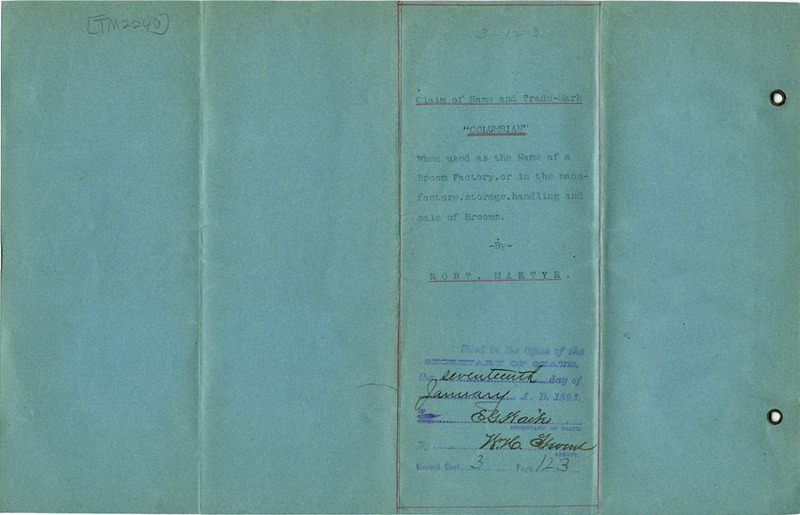 [TM2240]
3-123
Claim of Name and Trade-Mark
"COLUMBIAN"
When used as the Name of a
Broom Factory,or in the manu-
facture,storage,handling and
sale of Brooms.
-By-
ROBT. MARTYR.
Filed in the Office of the
SECRETARY OF STATE,
the seventeenth day of
January A. D. 1893.
E G Waite
SECRETARY OF STATE.
By W.H.
DEPUTY.
Record Book 3 Page 123